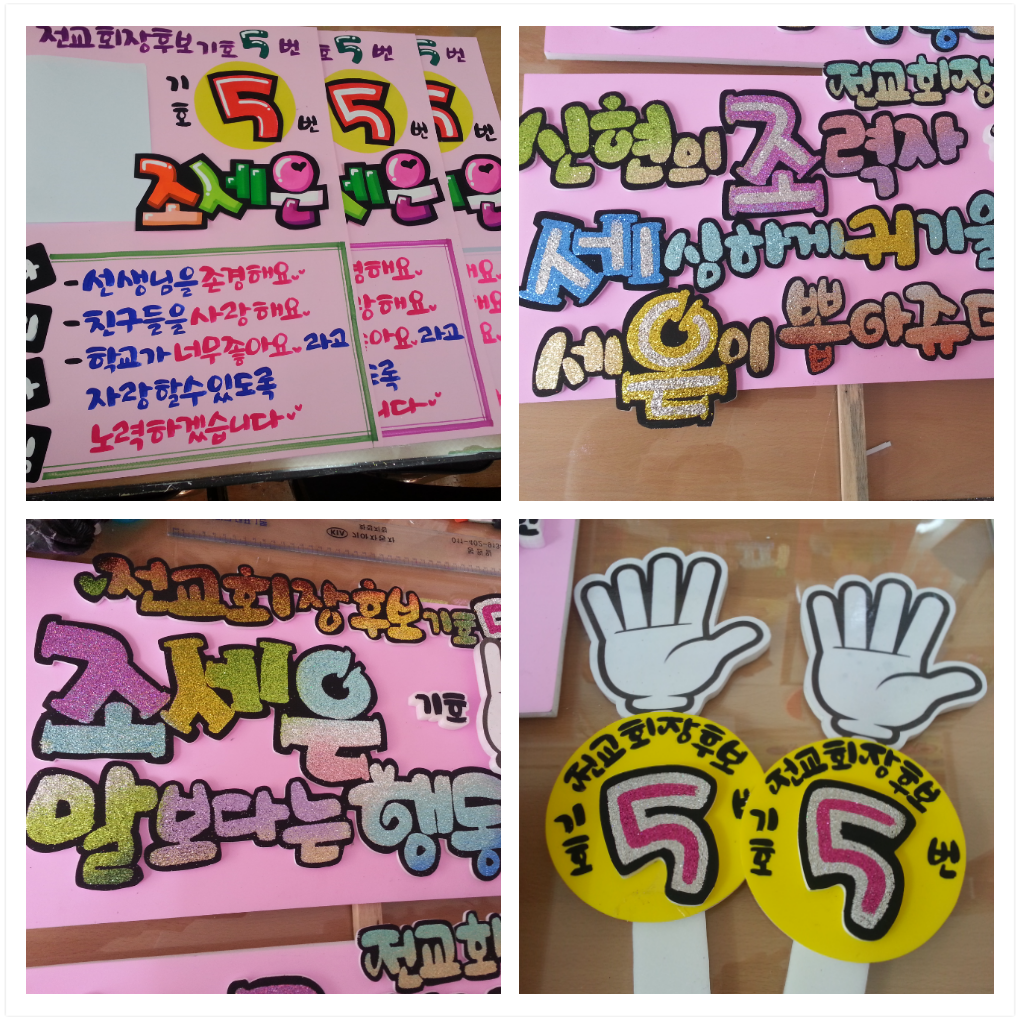 전교회장후보기호 5 번
기호 5 번
조세은
- 선생님을 존경해요
- 친구들을 사랑해요
- 학교가 너무좋아요 라고
자랑할수있도록
노력하겠습니다
호 5 번
5 번
세은
경해요
랑해요
아요 라고
록
니다
5 번
5 번
은
전교회장
신현의 조력자
세심하게 귀기울
세은이 뽑아주
전교회장후보기호
조세은
기호
말보다는 행동
전교회
KIA 기아자동차
전교회장후보
기회 5
전교회장후보
기회 5 번